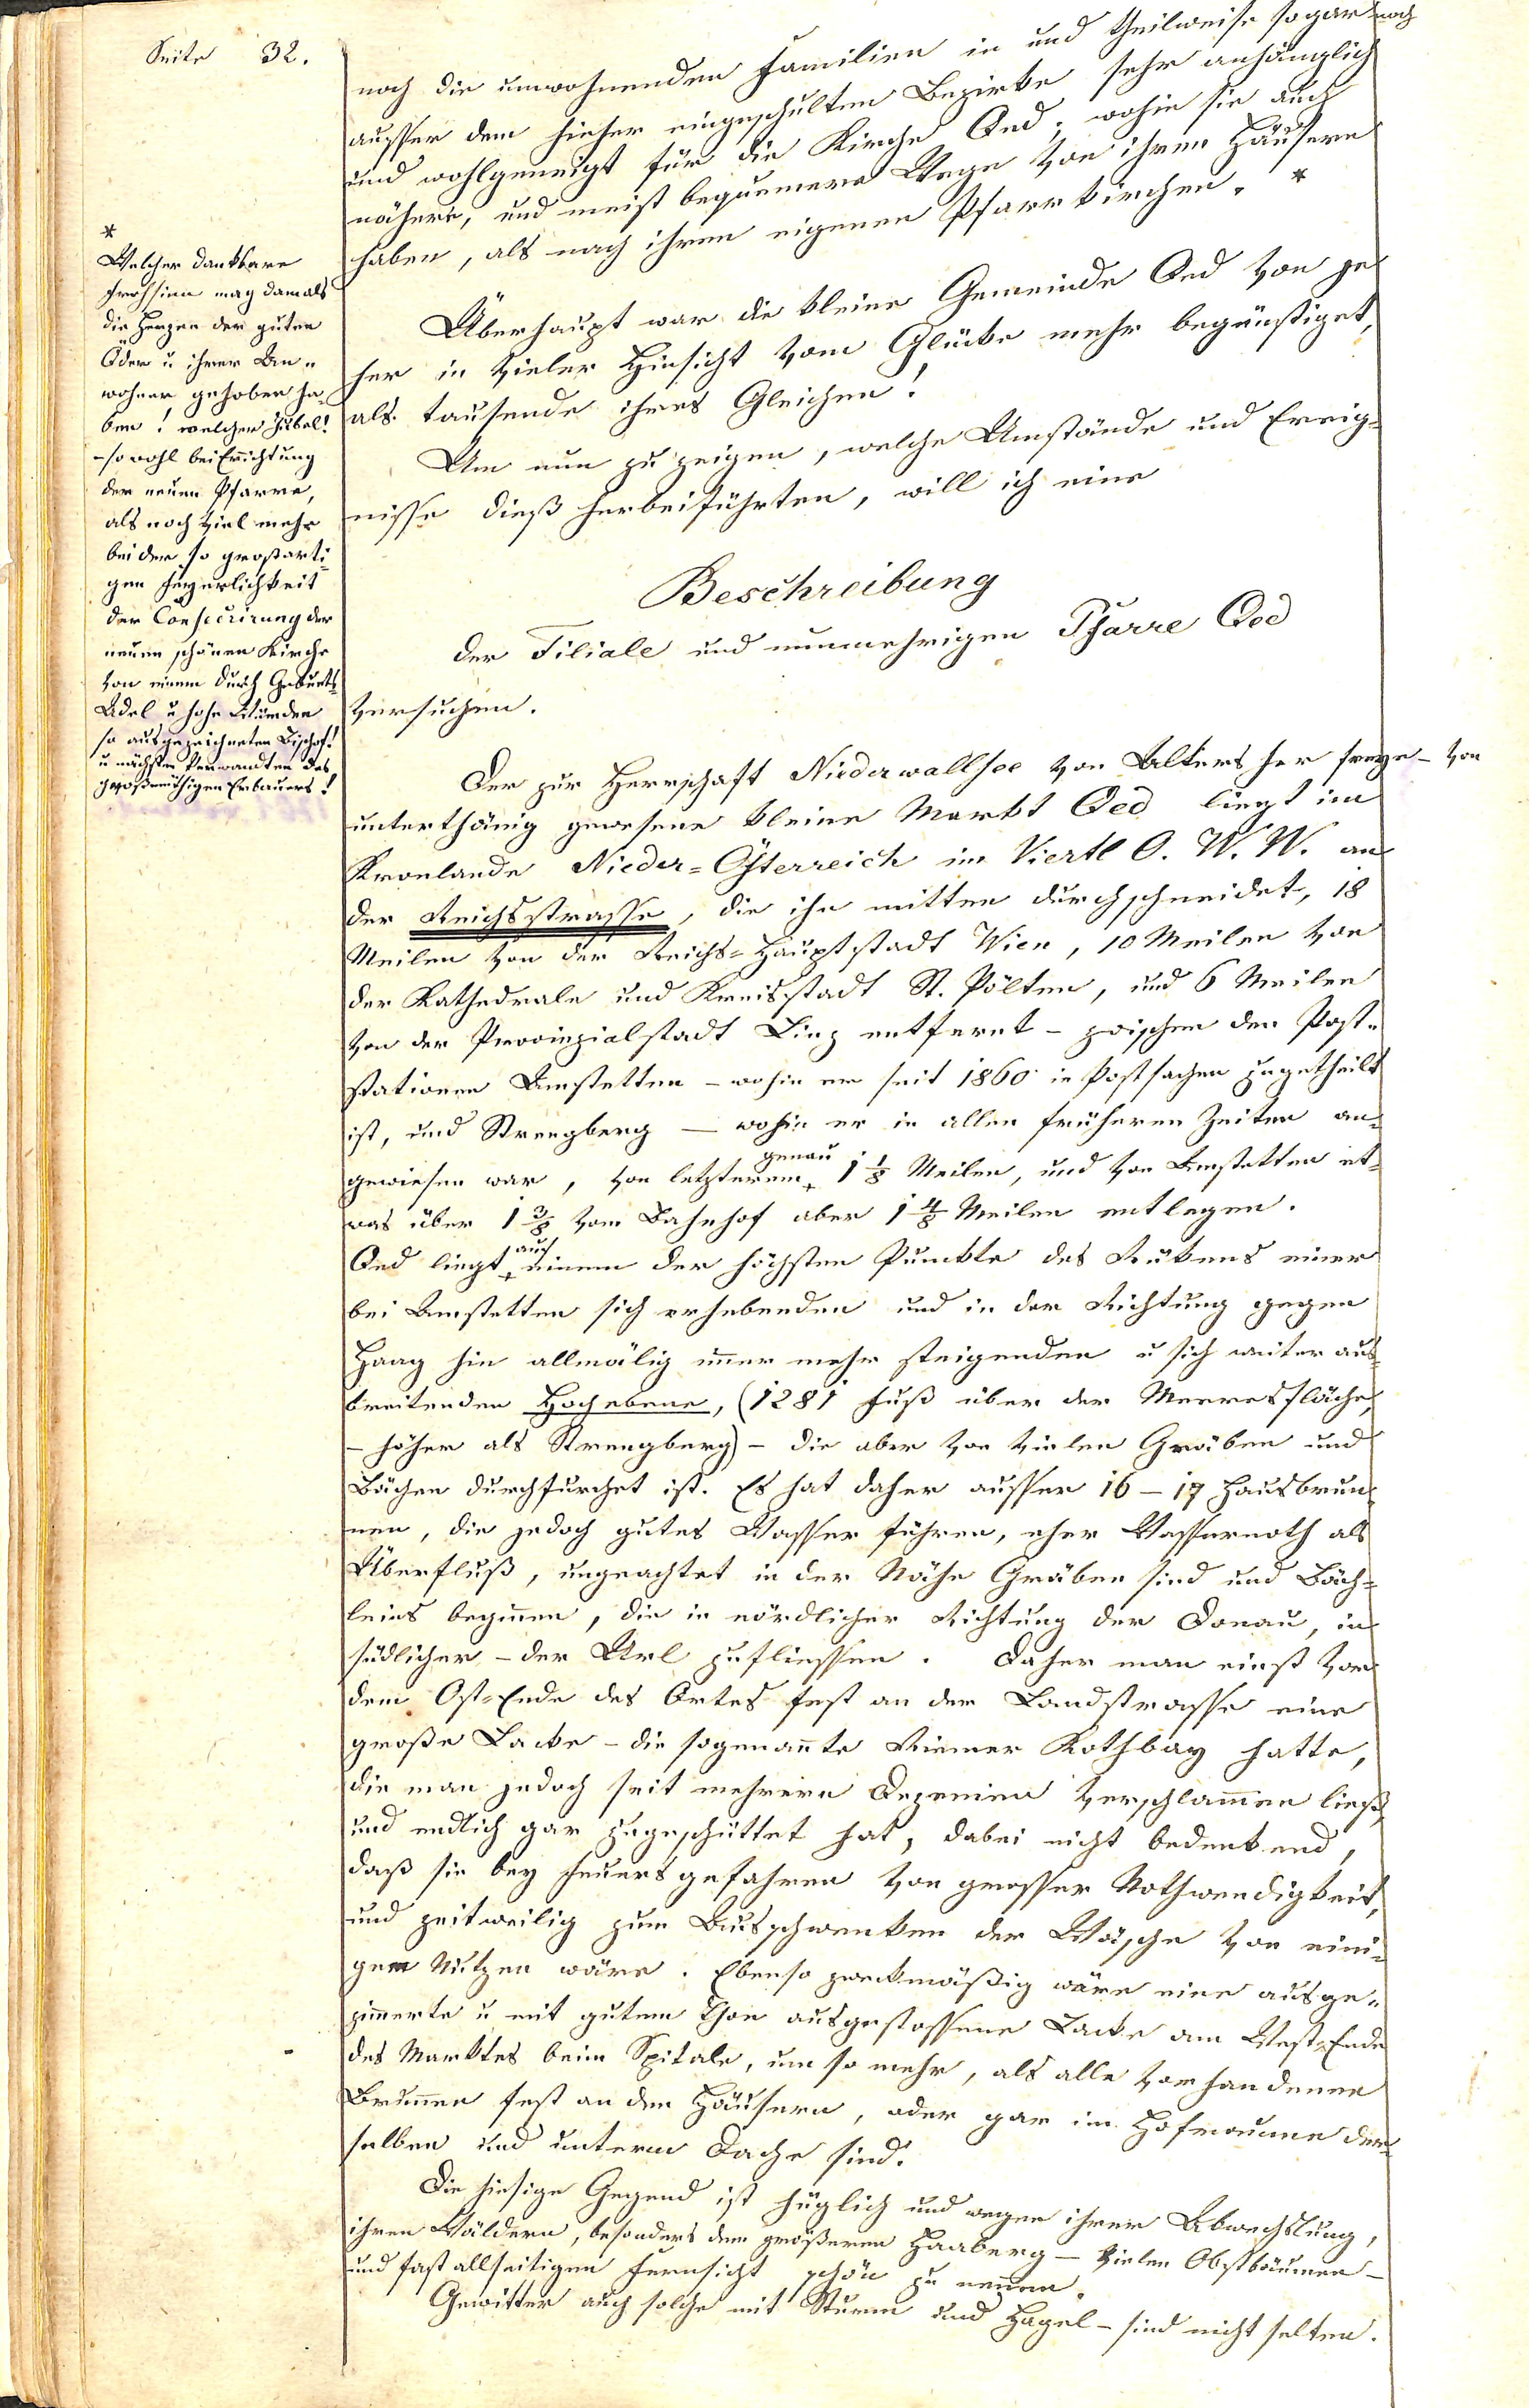 Seite 32.
noch die umwohnenden Familien in und theilweise sogar noch
ausser dem hieher eingeschulten Bezirke sehr anhänglich
und wohlgeneigt für die Kirche Oed, wohin sie auch
nähere, und meist bequemere Wege von ihren Häusern
haben, als nach ihren eigenen Pfarrkirchen. *
Überhaupt war die kleine Gemeinde Oed von je
her in vieler Hinsicht vom Glücke mehr begünstiget,
als tausende ihres Gleichen!
Um nun zu zeigen, welche Umstände und Ereig-
nisse dieß herbeiführten, will ich eine
Beschreibung
der Filiale und nunmehrigen Pfarre Oed
versuchen.
Der zur Herrschaft Niederwallsee von Alters her freye - von
unterthänig gewesene kleine Markt Oed liegt im
Kronlande Nieder-Österreich im Viertl O. W. W. an
der Reichsstrasse, die ihn mitten durchschneidet, 18
Meilen von der Reichs-Hauptstadt Wien, 10 Meilen von
der Kathedrale und Kreisstadt St. Pölten, und 6 Meilen
von der Provinzialstadt Linz entfernt - zwischen den Post-
stationen Amstetten - wohin er seit 1860 in Postsachen zugetheilt
ist, und Strengberg — wohin er in allen früheren Zeiten an-
genau
gewiesen war, von letzterem + 1 1/8 Meilen, und von Amstetten et-
was über 1 3/8 vom Bahnhof aber 1 4/8 Meilen entlegen.
auf
Oed liegt + einem der höchsten Punkte des Rükens einer
bei Amstetten sich erhebenden und in der Richtung gegen
Haag hin allmälig immer mehr steigenden u sich weiter aus-
breitenden Hochebene, (1281 Fuß über der Meeresfläche,
- höher als Strengberg) - die aber von vielen Gräben und
Bächen durchfurchet ist. Es hat daher ausser 16 - 17 Hausbrun-
nen, die jedoch gutes Wasser führen, eher Wassernoth als
Überfluß, ungeachtet in der Nähe Gräben sind und Bäch-
leins beginnen, die in nördlicher Richtung der Donau, in
südlicher - der Url zufliessen. Daher man einst vor
dem Ost-Ende des Ortes fest an der Landstrasse eine
große Lacke - die sogenannte Riemer Kothbay hatte,
die man jedoch seit mehrern Dezenien verschlammen ließ,
und endlich gar zugeschüttet hat, dabei nicht bedenkend,
daß sie bey Feuersgefahren von grosser Nothwendigkeit,
und zeitweilig zum Ausschwenken der Wäsche von eini-
gem Nutzen wäre. Ebenso zweckmäßig wäre eine ausge-
zimmerte u mit gutem Thon ausgestossene Lacke am West-Ende
des Marktes beim Spitale, um so mehr, als alle vorhandenen
Brunnen fest an den Häusern, oder gar im Hofraume der-
selben und unterm Dache sind.
Die hiesige Gegend ist hüglich und wegen ihrer Abwechslung,
ihren Wäldern, besonders dem größeren Haaberg - vielen Obstbäumen -
und fast allseitigen Fernsicht schön zu nennen.
Gewitter auch solche mit Sturm und Hagel - sind nicht selten.
*
Welcher dankbare
Frohsinn mag damals
die Herzen der guten
Öder u ihrer An-
wohner gehoben ha-
ben! welcher Jubel!
- so wohl bei Errichtung
der neuen Pfarre,
als noch viel mehr
bei der so großarti-
gen Feyerlichkeit
der Consecrirung der
neuen schönen Kirche
von einem durch Geburts-
Adel u hohe Würden
so ausgezeichneten Bischof!
u nächsten Verwandten des
großmüthigen Erbauers!